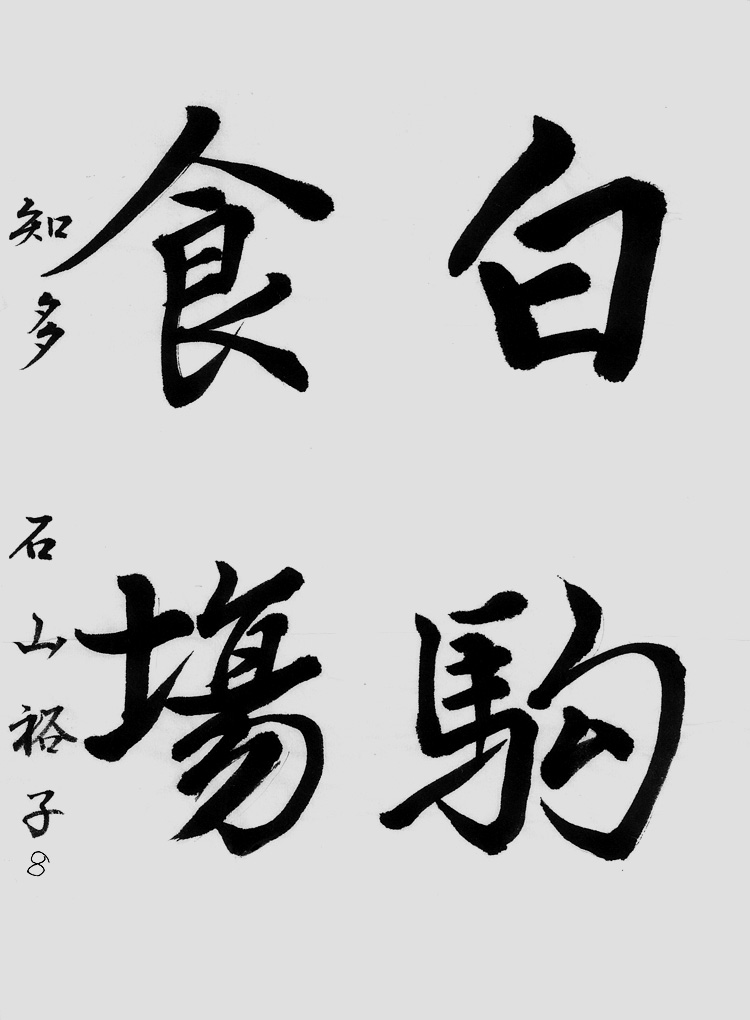 白駒
食場
知多 石山裕子 8